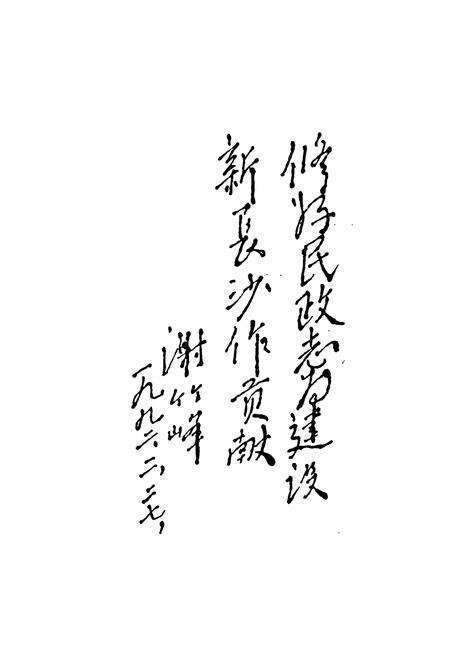 修好民政志为建设
新长沙作贡献
谢竹峰
一九九二、二、二七，